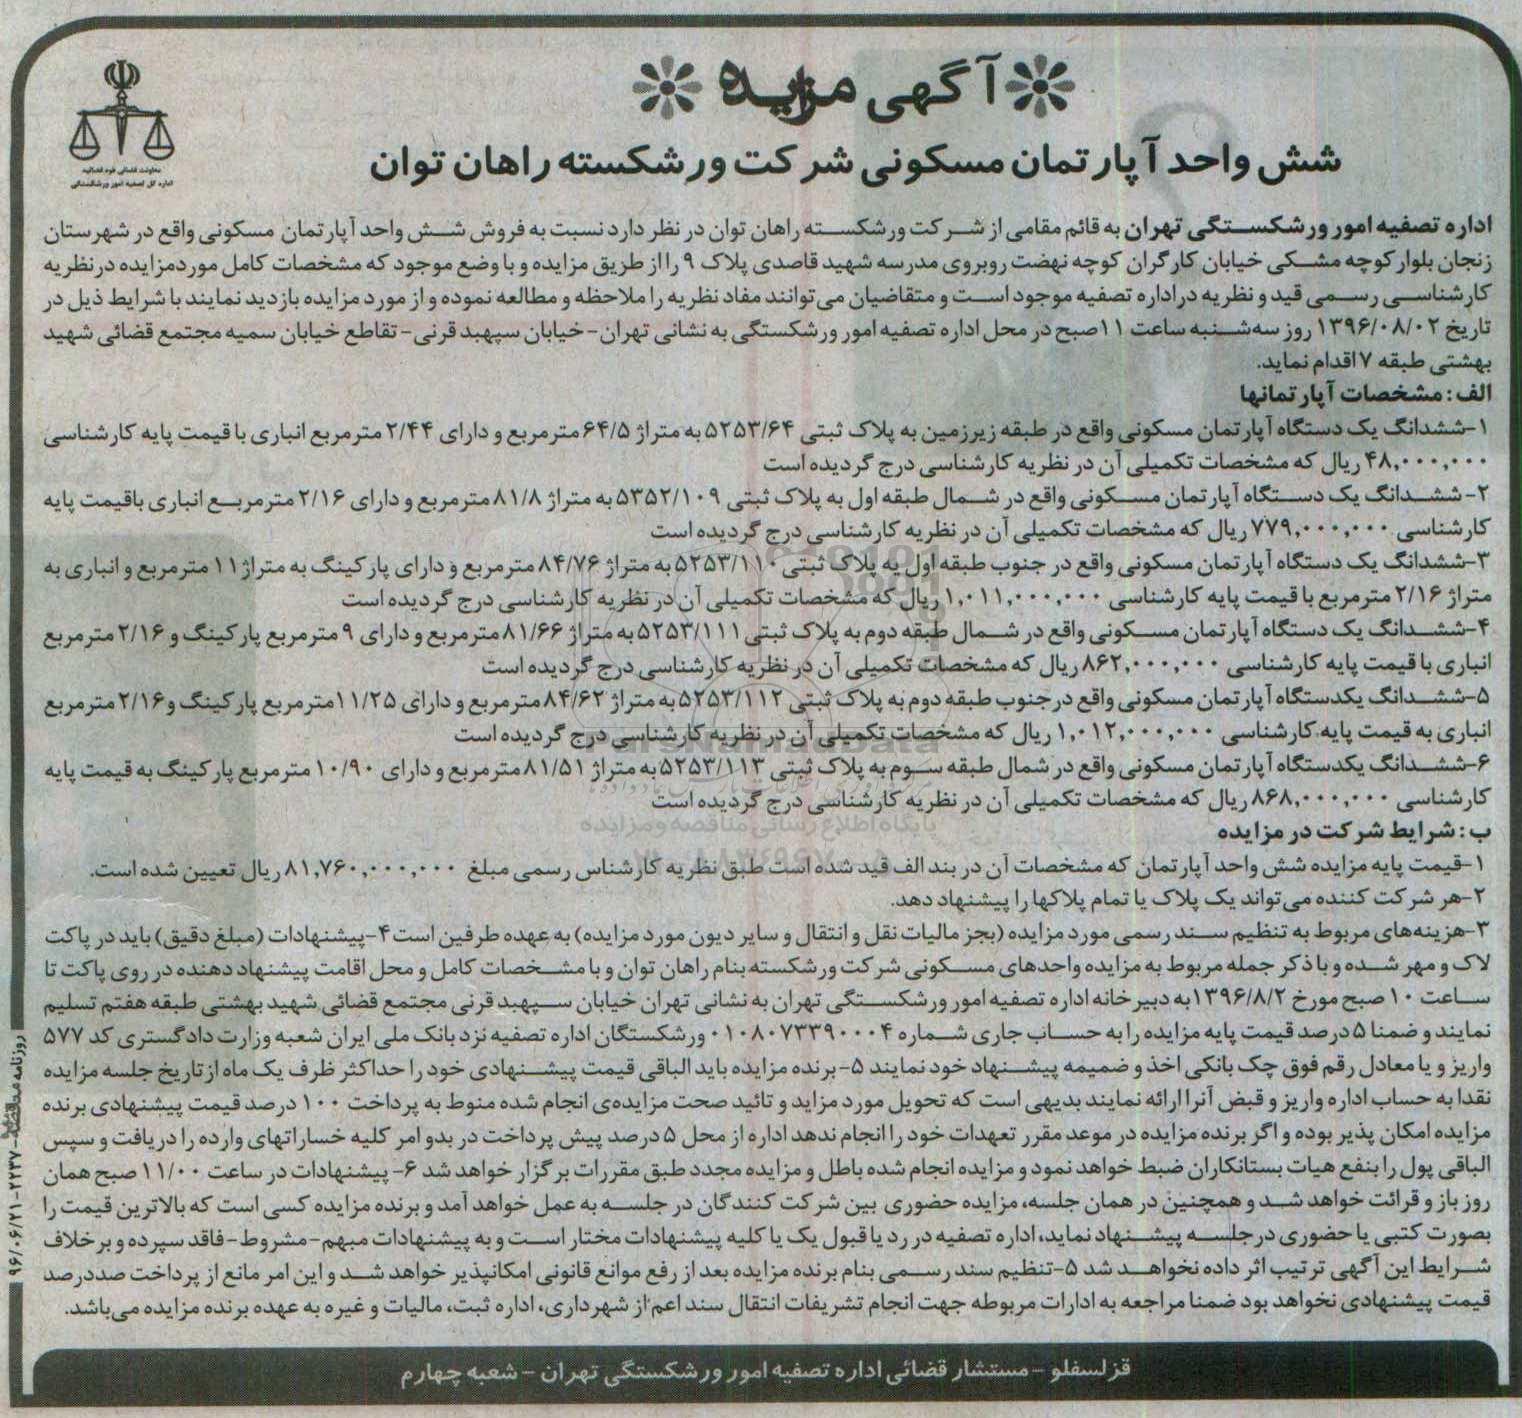 آگهی مزایده
معاونت قضائی قوه قضائیه
اداره کل تصفیه امور ورشکستگی
شش واحد آپارتمان مسکونی شرکت ورشکسته راهان توان
اداره تصفیه امور ورشکستگی تهران به قائم مقامی از شرکت ورشکسته راهان توان در نظر دارد نسبت به فروش شش واحد آپارتمان مسکونی واقع در شهرستان
زنجان بلوار کوچه مشکی خیابان کارگران کوچه نهضت روبروی مدرسه شهید قاصدی پلاک ۹ را از طریق مزایده و با وضع موجود که مشخصات کامل موردمزایده درنظریه
کارشناسی رسمی قید و نظریه دراداره تصفیه موجود است و متقاضیان می‌توانند مفاد نظریه را ملاحظه و مطالعه نموده و از مورد مزایده بازدید نمایند با شرایط ذیل در
تاریخ ۱۳۹۶/۰۸/۰۲ روز سه‌شنبه ساعت ۱۱صبح در محل اداره تصفیه امور ورشکستگی به نشانی تهران- خیابان سپهبد قرنی- تقاطع خیابان سمیه مجتمع قضائی شهید
بهشتی طبقه ۷ اقدام نماید.
الف: مشخصات آپارتمانها
۱-ششدانگ یک دستگاه آپارتمان مسکونی واقع در طبقه زیرزمین به پلاک ثبتی ۵۲۵۳/۶۴ به متراژ ۶۴/۵ مترمربع و دارای ۲/۴۴ مترمربع انباری با قیمت پایه کارشناسی
۴۸,۰۰۰,۰۰۰ ریال که مشخصات تکمیلی آن در نظریه کارشناسی درج گردیده است
۲- ششدانگ یک دستگاه آپارتمان مسکونی واقع در شمال طبقه اول به پلاک ثبتی ۵۳۵۲/۱۰۹ به متراژ ۸۱/۸ مترمربع و دارای ۲/۱۶ مترمربع انباری باقیمت پایه
کارشناسی ۷۷۹,۰۰۰,۰۰۰ ریال که مشخصات تکمیلی آن در نظریه کارشناسی درج گردیده است
۳-ششدانگ یک دستگاه آپارتمان مسکونی واقع در جنوب طبقه اول به پلاک ثبتی ۵۲۵۳/۱۱۰ به متراژ ۸۴/۷۶ مترمربع و دارای پارکینگ به متراژ ۱۱ مترمربع و انباری به
متراژ ۲/۱۶ مترمربع با قیمت پایه کارشناسی ۱,۰۱۱,۰۰۰,۰۰۰ ریال که مشخصات تکمیلی آن در نظریه کارشناسی درج گردیده است
۴-ششدانگ یک دستگاه آپارتمان مسکونی واقع در شمال طبقه دوم به پلاک ثبتی ۵۲۵۳/۱۱۱ به متراژ ۸۱/۶۶ مترمربع و دارای ۹ مترمربع پارکینگ و ۲/۱۶ مترمربع
انباری با قیمت پایه کارشناسی ۸۶۲,۰۰۰,۰۰۰ ریال که مشخصات تکمیلی آن در نظریه کارشناسی درج گردیده است
۵-ششدانگ یکدستگاه آپارتمان مسکونی واقع درجنوب طبقه دوم به پلاک ثبتی ۵۲۵۳/۱۱۲ به متراژ ۸۴/۶۲ مترمربع و دارای ۱۱/۲۵مترمربع پارکینگ و۲/۱۶ مترمربع
انباری به قیمت پایه کارشناسی ۱,۰۱۲,۰۰۰,۰۰۰ ریال که مشخصات تکمیلی آن در نظریه کارشناسی درج گردیده است
۶-ششدانگ یکدستگاه آپارتمان مسکونی واقع در شمال طبقه سوم به پلاک ثبتی ۵۲۵۳/۱۱۳به متراژ ۸۱/۵۱ مترمربع و دارای ۱۰/۹۰ مترمربع پارکینگ به قیمت پایه
کارشناسی ۸۶۸,۰۰۰,۰۰۰ ریال که مشخصات تکمیلی آن در نظریه کارشناسی درج گردیده است
ParsNamadData
پایگاه اطلاع رسانی مناقصه و مزایده
ب: شرایط شرکت در مزایده
۱-قیمت پایه مزایده شش واحد آپارتمان که مشخصات آن در بند الف قید شده است طبق نظریه کارشناس رسمی مبلغ ۸۱,۷۶۰,۰۰۰,۰۰۰ ریال تعیین شده است.
۲-هر شرکت کننده می‌تواند یک پلاک یا تمام پلاکها را پیشنهاد دهد.
۳-هزینه‌های مربوط به تنظیم سند رسمی مورد مزایده (بجز مالیات نقل و انتقال و سایر دیون مورد مزایده) به عهده طرفین است ۴-پیشنهادات (مبلغ دقیق) باید در پاکت
لاک و مهر شده و با ذکر جمله مربوط به مزایده واحدهای مسکونی شرکت ورشکسته بنام راهان توان و با مشخصات کامل و محل اقامت پیشنهاد دهنده در روی پاکت تا
ساعت ۱۰ صبح مورخ ۱۳۹۶/۸/۲ به دبیرخانه اداره تصفیه امور ورشکستگی تهران به نشانی تهران خیابان سپهبد قرنی مجتمع قضائی شهید بهشتی طبقه هفتم تسلیم
نمایند و ضمنا ۵ درصد قیمت پایه مزایده را به حساب جاری شماره ۰۱۰۸۰۷۳۳۹۰۰۰۴ ورشکستگان اداره تصفیه نزد بانک ملی ایران شعبه وزارت دادگستری کد ۵۷۷
واریز و یا معادل رقم فوق چک بانکی اخذ و ضمیمه پیشنهاد خود نمایند ۵- برنده مزایده باید الباقی قیمت پیشنهادی خود را حداکثر ظرف یک ماه از تاریخ جلسه مزایده
نقدا به حساب اداره واریز و قبض آنرا ارائه نمایند بدیهی است که تحویل مورد مزاید و تائید صحت مزایده‌ی انجام شده منوط به پرداخت ۱۰۰ درصد قیمت پیشنهادی برنده
مزایده امکان پذیر بوده و اگر برنده مزایده در موعد مقرر تعهدات خود را انجام ندهد اداره از محل ۵ درصد پیش پرداخت در بدو امر کلیه خساراتهای وارده را دریافت و سپس
الباقی پول را بنفع هیات بستانکاران ضبط خواهد نمود و مزایده انجام شده باطل و مزایده مجدد طبق مقررات برگزار خواهد شد ۶- پیشنهادات در ساعت ۱۱/۰۰ صبح همان
روز باز و قرائت خواهد شد و همچنین در همان جلسه، مزایده حضوری بین شرکت کنندگان در جلسه به عمل خواهد آمد و برنده مزایده کسی است که بالاترین قیمت را
بصورت کتبی یا حضوری درجلسه پیشنهاد نماید، اداره تصفیه در رد یا قبول یک یا کلیه پیشنهادات مختار است و به پیشنهادات مبهم-مشروط- فاقد سپرده و برخلاف
شرایط این آگهی ترتیب اثر داده نخواهد شد ۵-تنظیم سند رسمی بنام برنده مزایده بعد از رفع موانع قانونی امکانپذیر خواهد شد و این امر مانع از پرداخت صددرصد
قیمت پیشنهادی نخواهد بود ضمنا مراجعه به ادارات مربوطه جهت انجام تشریفات انتقال سند اعم از شهرداری، اداره ثبت، مالیات و غیره به عهده برنده مزایده می‌باشد.
قزلسفلو - مستشار قضائی اداره تصفیه امور ورشکستگی تهران - شعبه چهارم
روزنامه مناقصه - ۲۲۳۷ - ۹۶/۰۶/۲۱